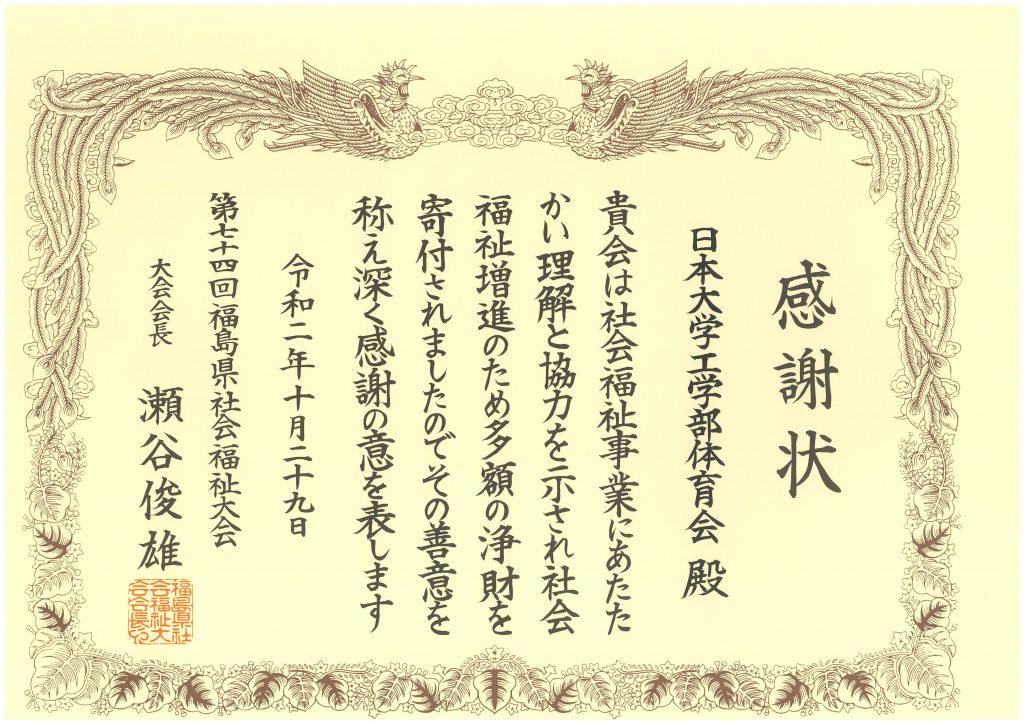 感謝状
日本大学工学部体育会 殿
貴会は社会福祉事業にあたた
かい理解と協力を示され社会
福祉増進のため多額の浄財を
寄付されましたのでその善意を
称え深く感謝の意を表します
令和二年十月二十九日
第七十四回福島県社会福祉大会
大会会長 瀬谷俊雄
福島県社
会福祉大
会会長印